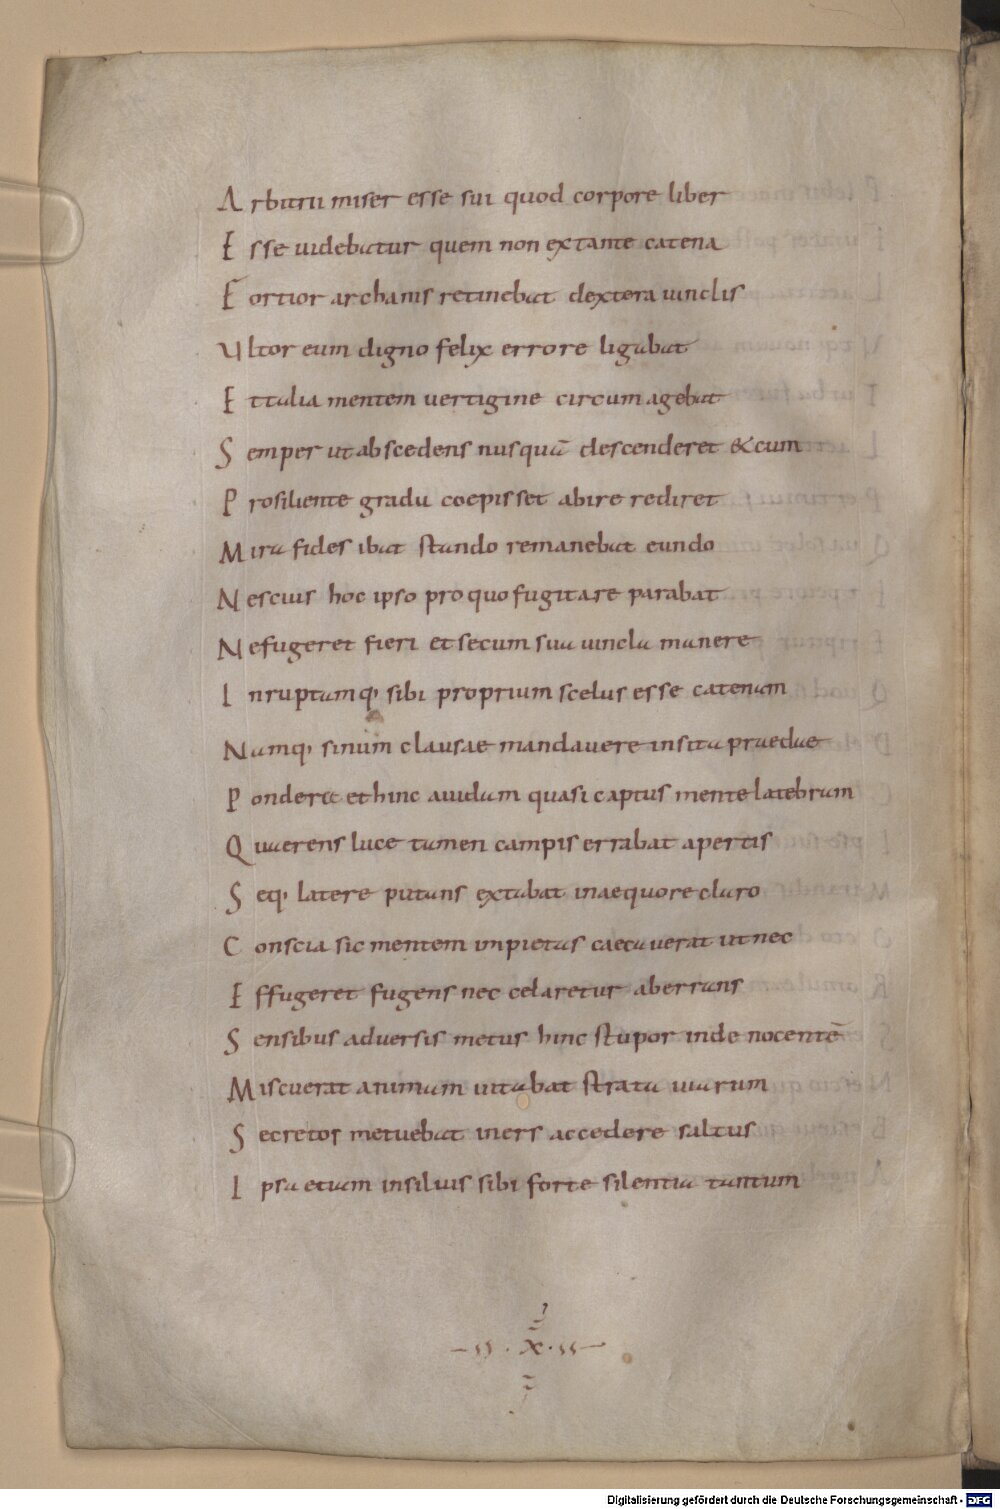 Arbitrii miser esse sui quod corpore liber
Esse uidebatur quem non extante catena
Fortior archanis retinebat dextera uinclis
Ultor eum digno felix errore ligabat
Et talia mentem uertigine circum agebat
Semper ut abscedens nusquā descenderet & cum
Prosiliente gradu coepisset abire rediret
Mira fides ibat stando remanebat eundo
Nescius hoc ipso pro quo fugitare parabat
Ne fugeret fieri et secum sua uincla manere
Inruptamq; sibi proprium scelus esse catenam
Namq; sinum clausae mandauere insita praedae
Pondera et hinc auidam quasi captus mente latebram
Quaerens luce tamen campis errabat apertis
Seq; latere putans extabat in aequore claro
Conscia sic mentem impietas caecauerat ut nec
Effugeret fugens nec celaretur aberrans
Sensibus aduersis metus hinc stupor inde nocentē
Miscuerat animam uitabat strata uiarum
Secretos metuebat iners accedere saltus
Ipsa etiam in siluis sibi forte silentia tantum
· X ·
Digitalisierung gefördert durch die Deutsche Forschungsgemeinschaft - DFG